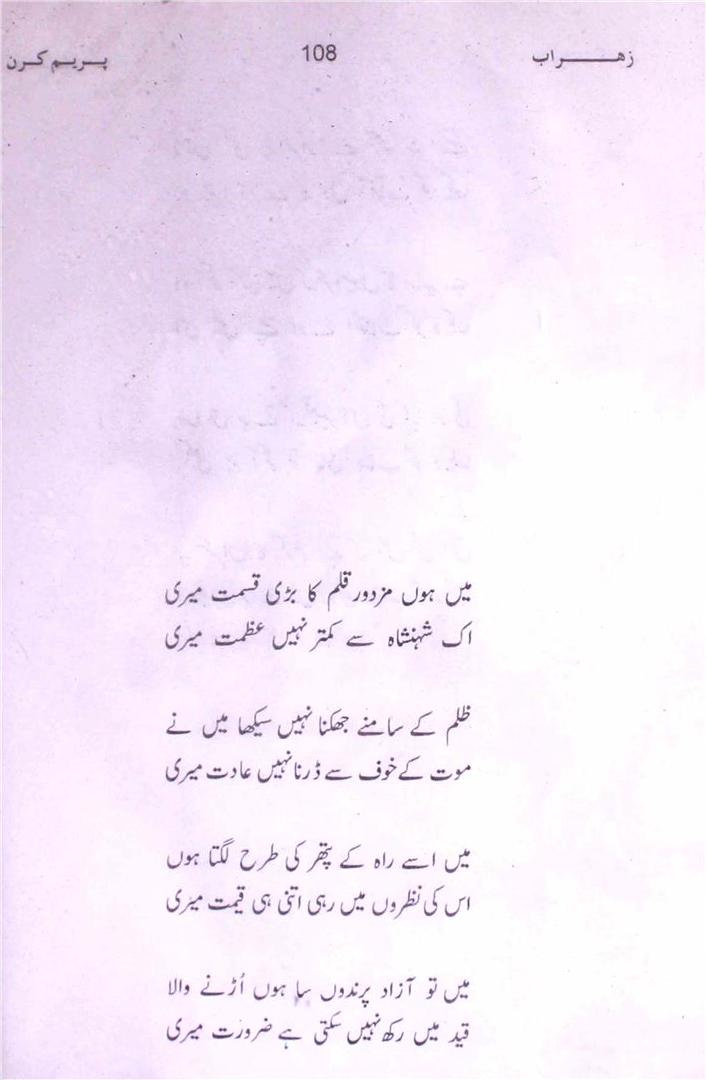 زهراب 108 پریم کرن
میں ہوں مزدور قلم کا بڑی قسمت میری
اک شہنشاہ سے کمتر نہیں عظمت میری
ظلم کے سامنے جھکنا نہیں سیکھا میں نے
موت کے خوف سے ڈرنا نہیں عادت میری
میں اسے راہ کے پتھر کی طرح لگتا ہوں
اس کی نظروں میں رہی اتنی ہی قیمت میری
میں تو آزاد پرندوں سا ہوں اُڑنے والا
قید میں رکھ نہیں سکتی ہے ضرورت میری